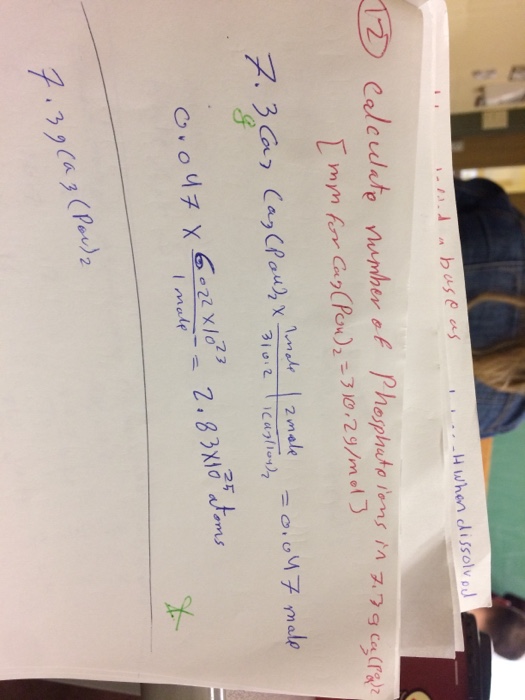 base as
H when dissolved
(12) Calculate number of Phosphate ions in 7.3 g Ca3(PO4)2
[mm for Ca3(PO4)2 = 310.2 g/mol]
7.3 g Ca3(PO4)2 × 1 mole / 310.2 | 2 mole / 1 Ca3(PO4)2 = 0.047 mole
0.047 × 6.022 × 10^23 / 1 mole = 2.83 × 10^25 atoms
7.3 g Ca3(PO4)2